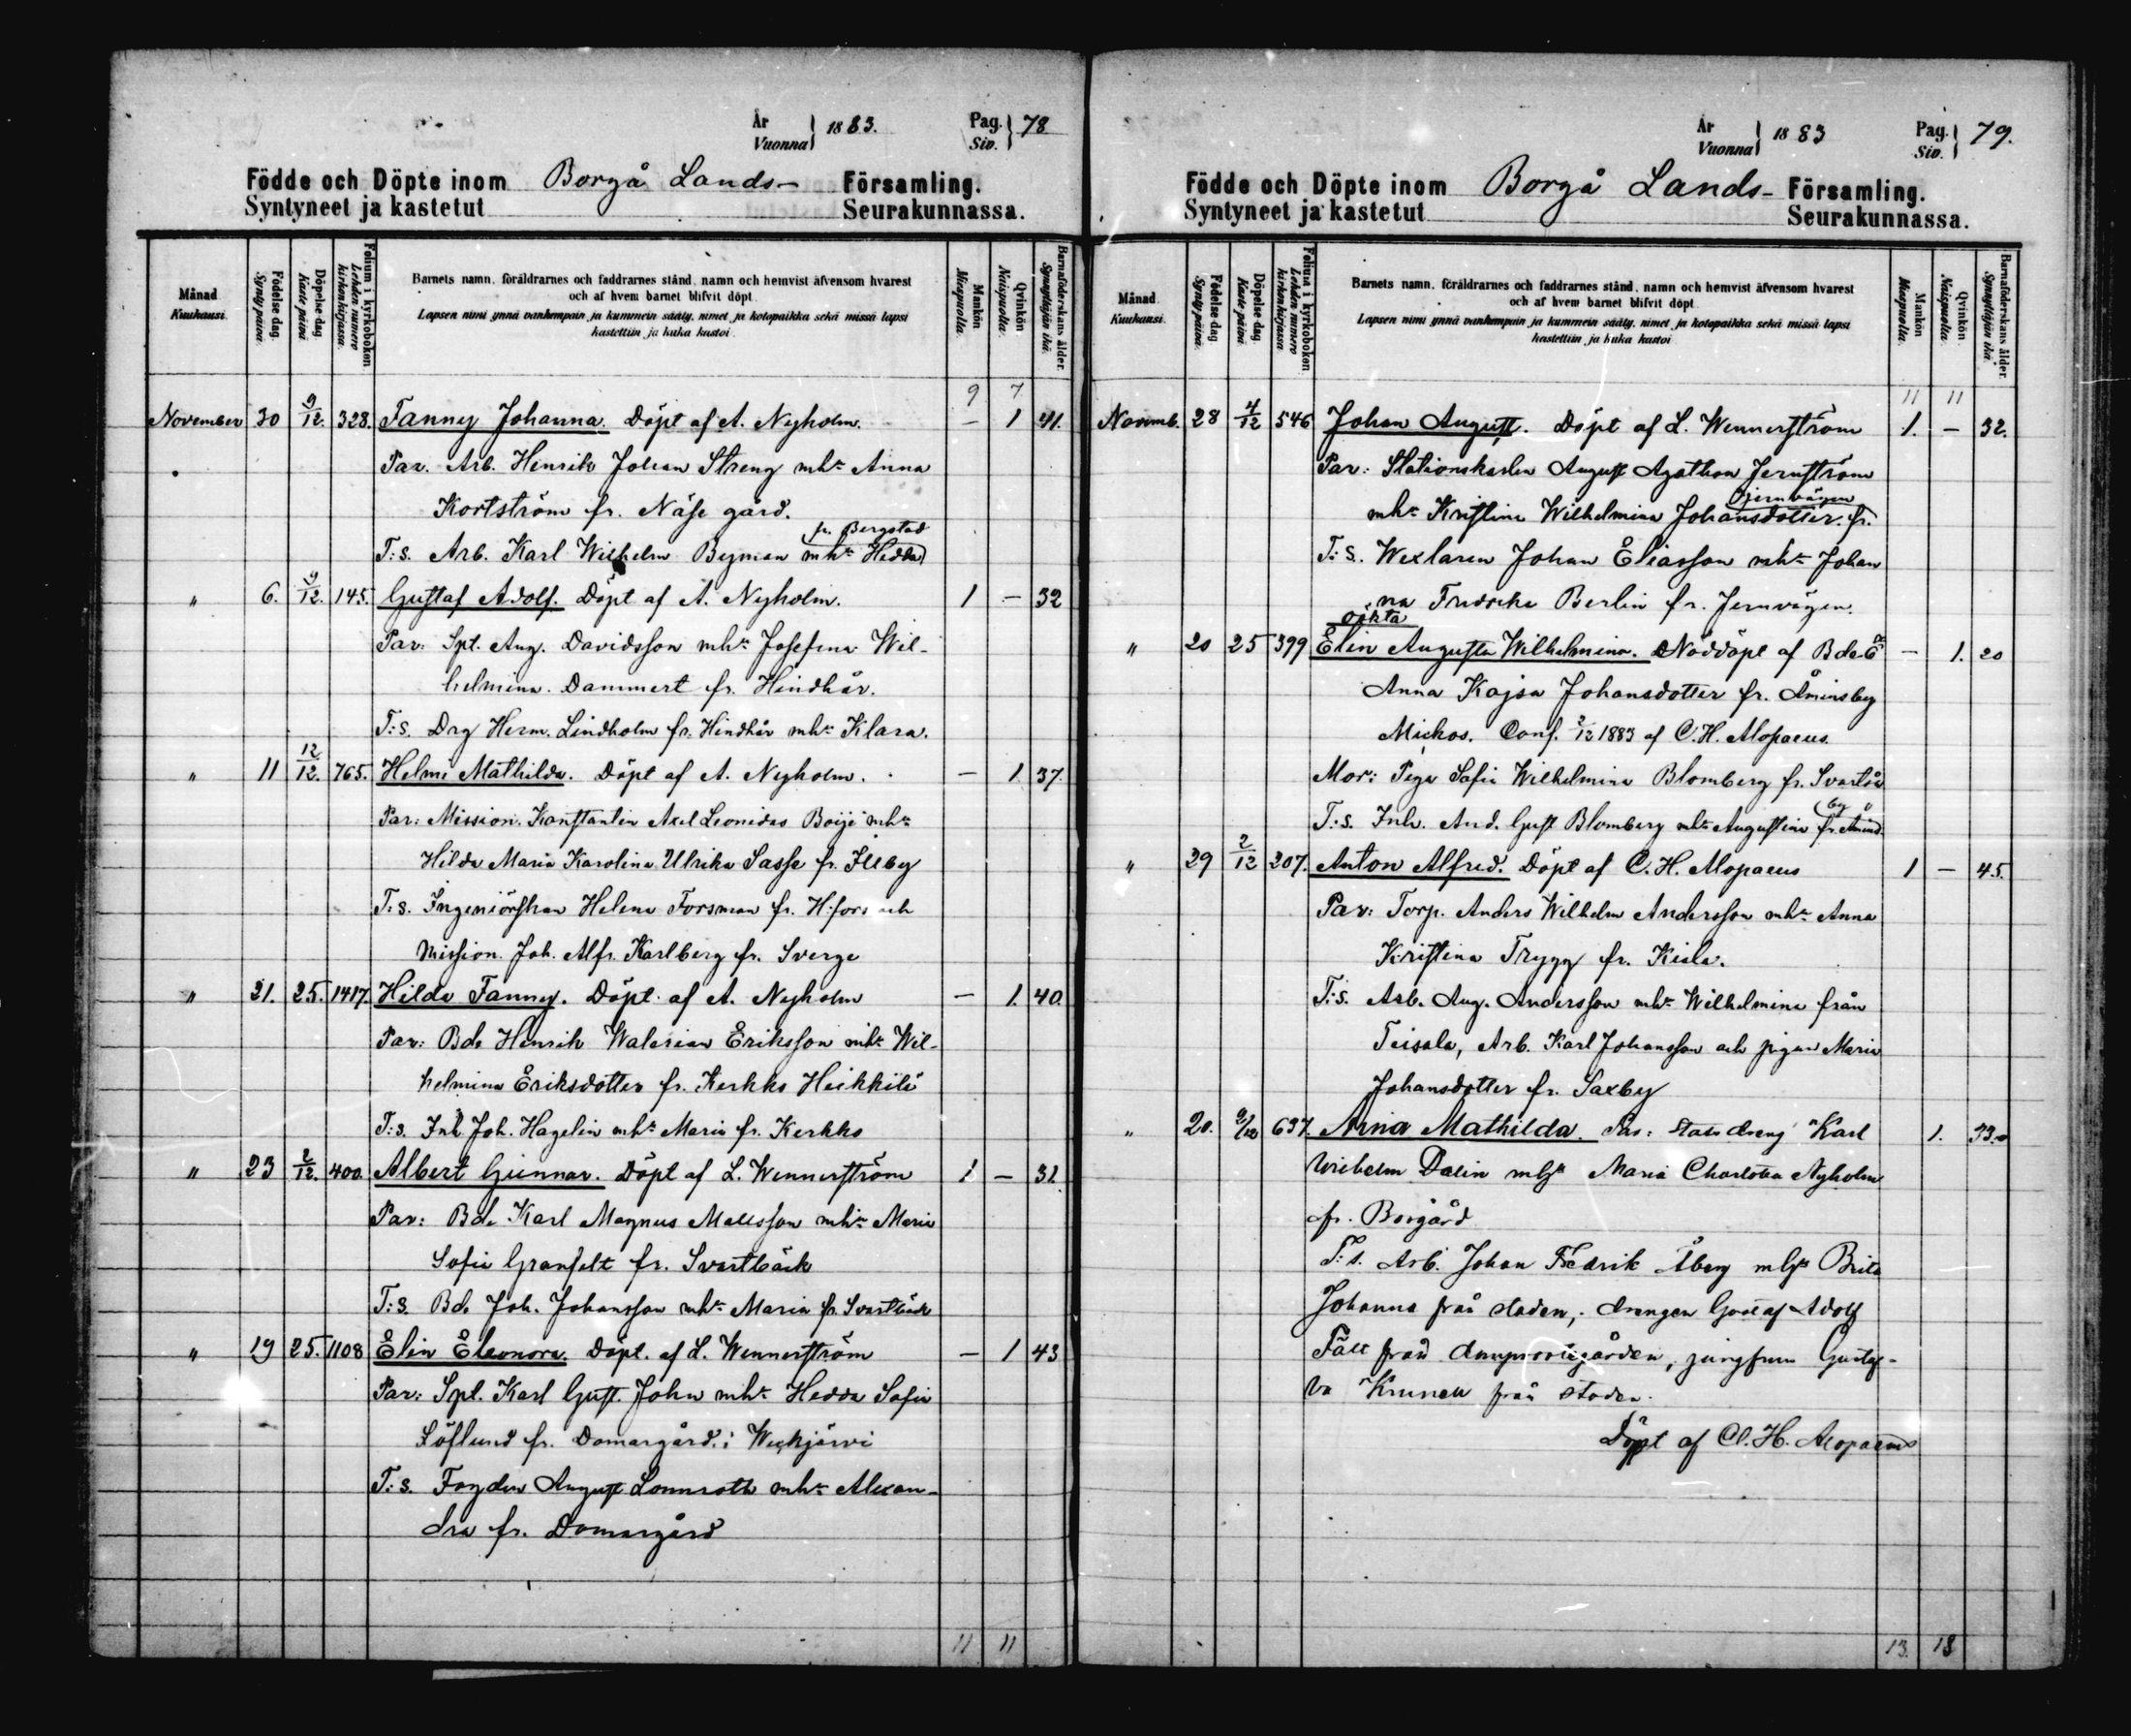 År Vuonna } 1883. Pag. Siv. } 78
Födde och Döpte inom Borgå Lands- Församling.
Syntyneet ja kastetut Seurakunnassa.
Månad Kuukausi.
Födelse dag. Syntypäivä.
Döpelse dag. Kaste päivä.
Folium i kyrkoboken Lehden numero kirkonkirjassa.
Barnets namn, föräldrarnes och faddrarnes stånd, namn och hemvist äfvensom hvarest
och af hvem barnet blifvit döpt.
Lapsen nimi ynnä vanhempain ja kummein sääty, nimet ja kotopaikka sekä missä lapsi
kastettiin ja kuka kastoi.
Mankön Miespuolia.
Qvinkön Naispuolia.
Barnaföderskans ålder. Synnyttäjän ikä.
9 7
November 30 9/12 328. Fanny Johanna. Döpt af A. Nyholm. — 1 41.
Par. Arb. Henrik Johan Streng mhr Anna
Kortström fr. Näse gård.
fr. Bergstad
T:s. Arb. Karl Wilhelm Byman mhr Hedda
" 6. 9/12. 145. Gustaf Adolf. Döpt af A. Nyholm. 1 — 32
Par: Spt. Aug. Davidsson mhr Josefina Wil-
helmina Dammert fr. Hindhår.
T:s. Drg Herm. Lindholm fr. Hindhår mhr Klara.
" 11 12/12. 765. Helmi Mathilda. Döpt af A. Nyholm. — 1 37.
Par: Mission. Konstantin Axel Leonidas Boije mhr
Hilda Maria Karolina Ulrika Sasse fr. Illby
T:s. Ingeniörskan Helena Forsman fr. H:fors och
Mission. Joh. Alfr. Karlberg fr. Sverge
" 21. 25. 1417. Hilda Fanny. Döpt af A. Nyholm — 1. 40.
Par: Bd. Henrik Walerian Eriksson mhr Wil-
helmina Eriksdotter fr. Kerkko Heikkilä
T:s. Inh Joh. Hagelin mhr Maria fr. Kerkko
" 23 2/12. 400. Albert Gunnar. Döpt af L. Wennerström 1 — 31
Par: Bd. Karl Magnus Mattsson mhr Maria
Sofia Granfelt fr. Svartbäck
T:s. Bd. Joh. Johansson mhr Maria fr. Svartbäck
" 19 25. 1108 Elin Eleonora. Döpt. af L. Wennerström — 1 43
Par: Spt. Karl Gust. John mhr Hedda Sofia
Löflund fr. Domargård i Weckjärvi
T:s. Fogden August Lönnroth mhr Alexan-
dra fr. Domargård
11 11
År Vuonna } 1883 Pag. Siv. } 79.
Födde och Döpte inom Borgå Lands- Församling.
Syntyneet ja kastetut Seurakunnassa.
Månad Kuukausi.
Födelse dag Syntypäivä.
Döpelse dag Kaste päivä.
Folium i kyrkoboken Lehden numero kirkonkirjassa
Barnets namn, föräldrarnes och faddrarnes stånd, namn och hemvist äfvensom hvarest
och af hvem barnet blifvit döpt
Lapsen nimi ynnä vanhempain ja kummein sääty, nimet ja kotopaikka sekä missä lapsi
kastettiin ja kuka kastoi
Mankön Miespuolia.
Qvinkön Naispuolia.
Barnaföderskans ålder. Synnyttäjän ikä.
11 11
Novemb. 28 4/12 546 Johan August. Döpt af L. Wennerström 1. — 32.
Par: Stationskarlen August Agathon Jernström
jernvägen
mhr Kristina Wilhelmina Johansdotter fr.
T:s. Wexlaren Johan Eliasson mhr Johan
na Fredrika Berlin fr. Jernvägen.
oäkta
" 20 25 399 Elin Augusta Wilhelmina. Nöddöpt af Bde — 1. 20
Anna Kajsa Johansdotter fr. Åminsby
Mickos. Conf. 2/12 1883 af C. H. Alopaeus.
Mor: Piga Sofia Wilhelmina Blomberg fr. Svartså
by
T:s. Inh. And. Gust Blomberg mhr Augustina fr. Åmins
" 29 2/12 207. Anton Alfred. Döpt af C. H. Alopaeus 1 — 45.
Par: Torp. Anders Wilhelm Andersson mhr Anna
Kristina Trygg fr. Kiala.
T:s. Arb. Aug. Andersson mhr Wilhelmina från
Teisala, Arb. Karl Johansson och pigan Maria
Johansdotter fr. Saxby
" 20. 9/12 637. Aina Mathilda. Par: Statsdreng Karl 1. 33
Wilhelm Dalin mhr Maria Charlotta Nyholm
fr. Boigård
T:s. Arb. Johan Fredrik Åberg mhr Brita
Johanna från staden, drengen Gustaf Adolf
Fält från, jungfrun Gusta-
va från staden.
Döpt af C. H. Alopaeus
13. 13